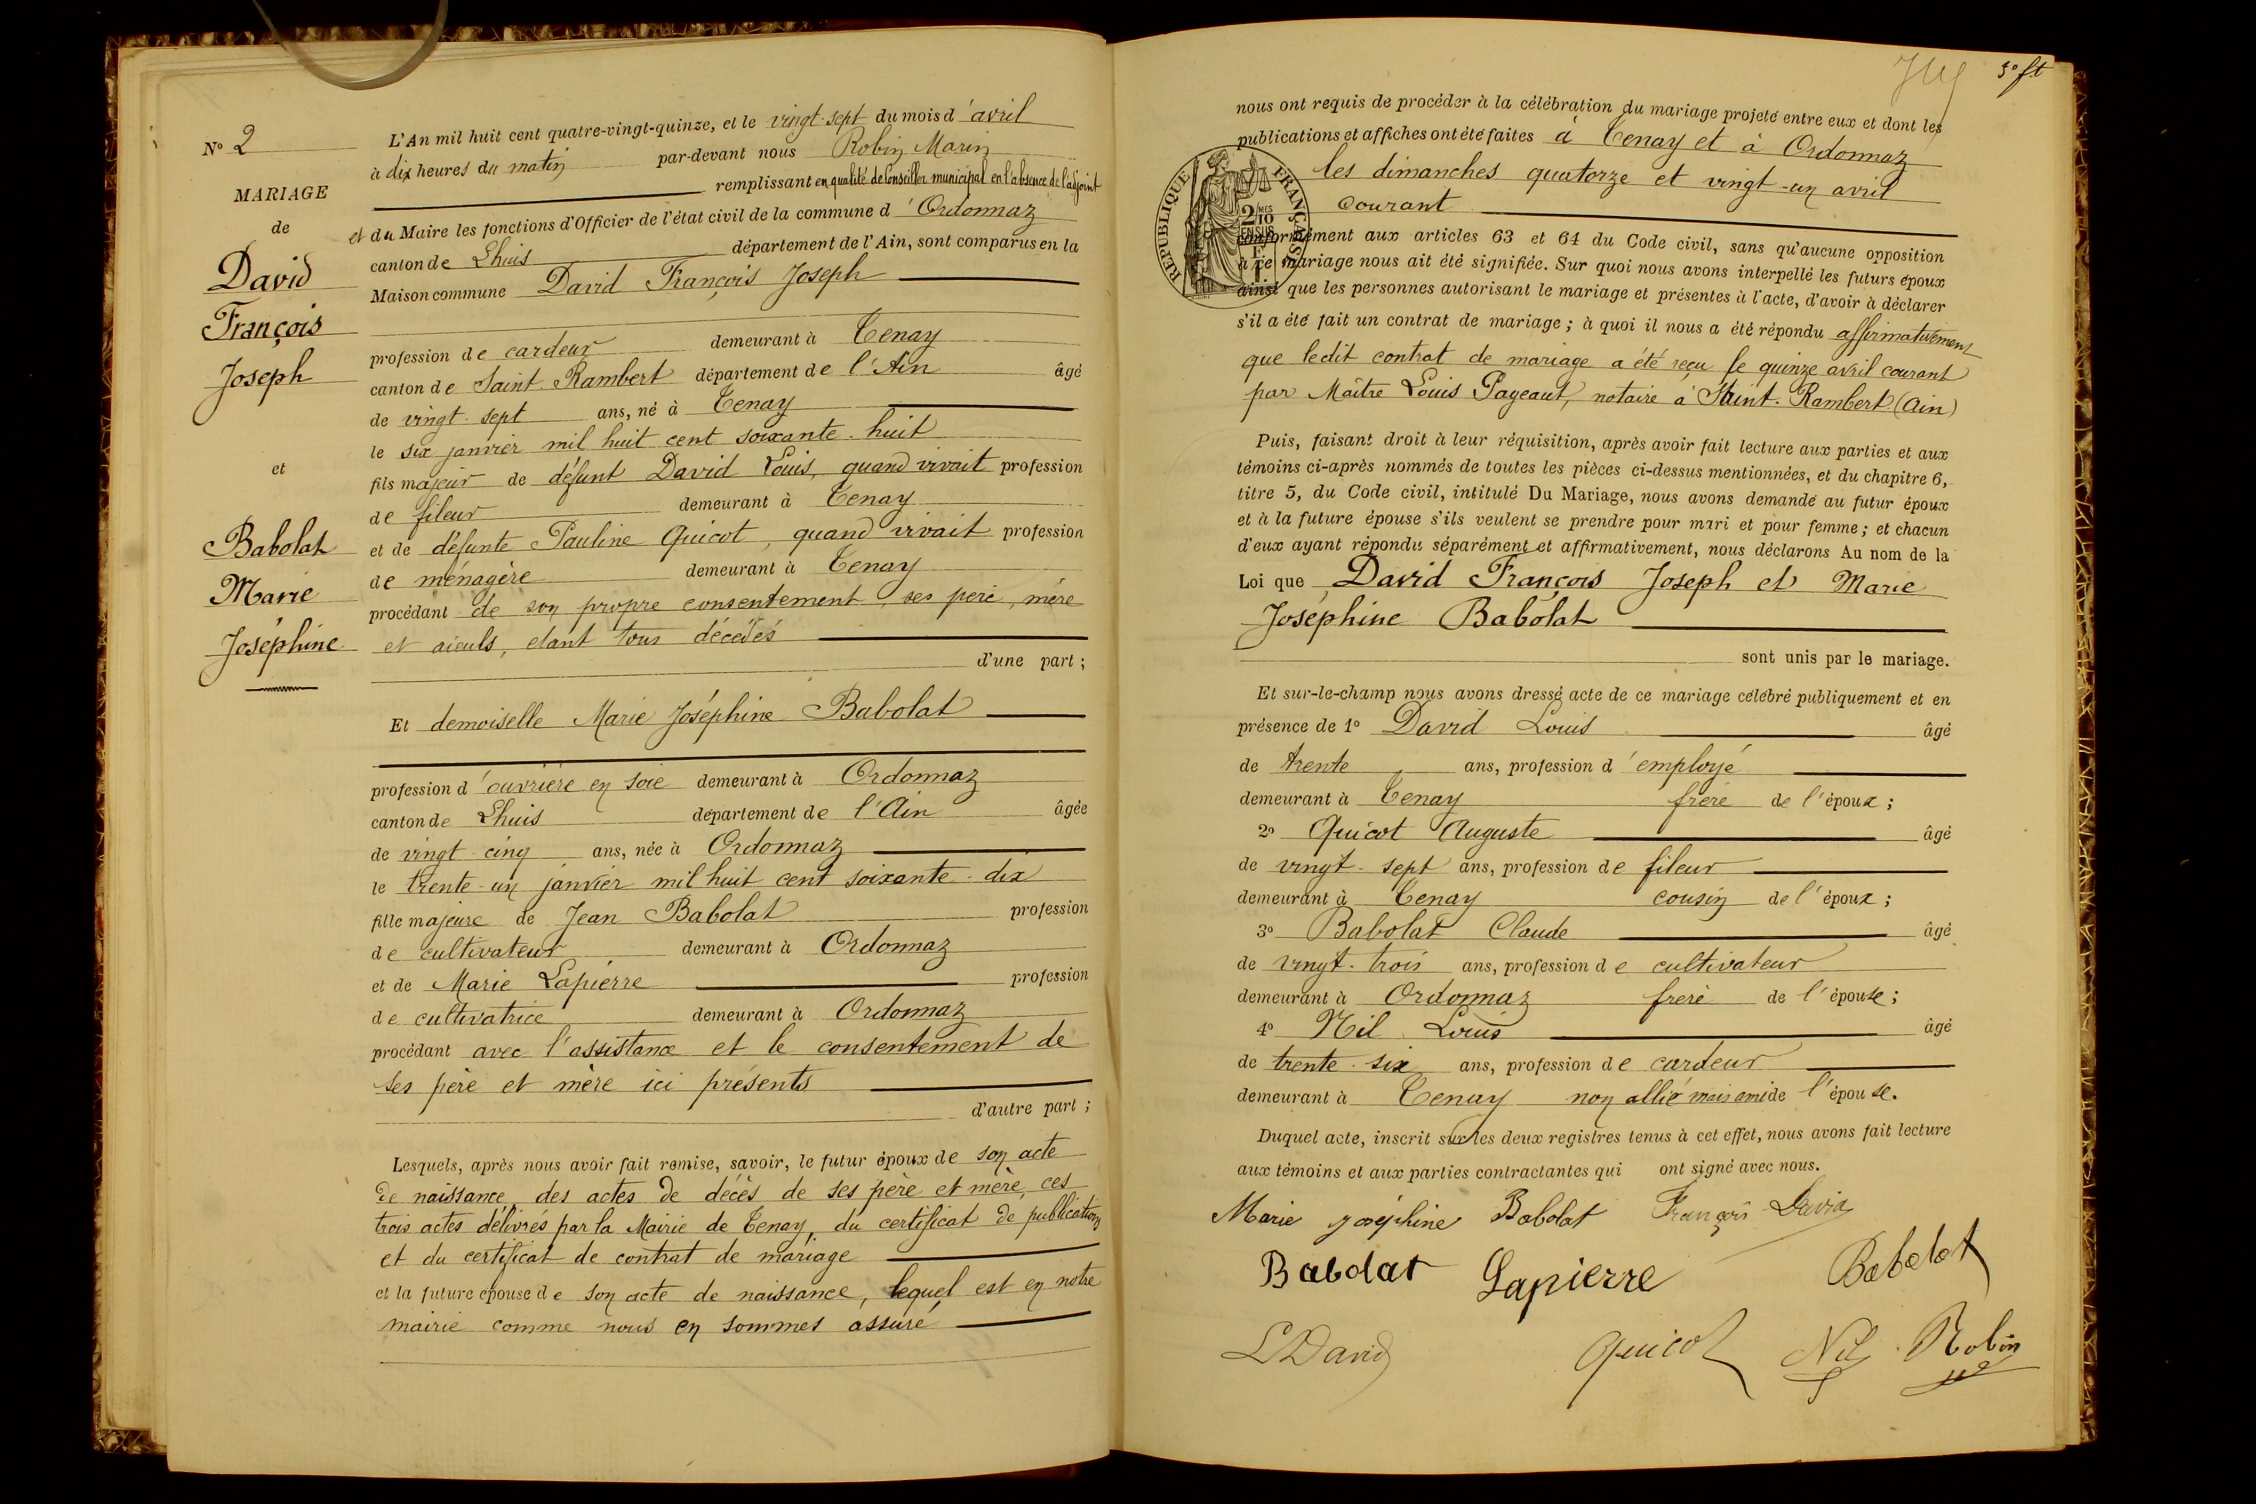 N° 2
MARIAGE
de
David
François
Joseph
et
Babolat
Marie
Joséphine
L'An mil huit cent quatre-vingt-quinze, et le vingt-sept du mois d'avril
à dix heures du matin par-devant nous Robin Marin
remplissant en qualité de Conseiller municipal en l'absence de l'adjoint
et du Maire les fonctions d'Officier de l'état civil de la commune d'Ordonnaz
canton de Lhuis département de l'Ain, sont comparus en la
Maison commune David François Joseph
profession de cardeur demeurant à Tenay
canton de Saint Rambert département de l'Ain âgé
de vingt-sept ans, né à Tenay
le six janvier mil huit cent soixante-huit
fils majeur de défunt David Louis, quand vivait profession
de fileur demeurant à Tenay
et de défunte Pauline Quicot, quand vivait profession
de ménagère demeurant à Tenay
procédant de son propre consentement, ses père, mère
et aieuls, etant tous décédés
d'une part;
Et demoiselle Marie Joséphine Babolat
profession d'ouvrière en soie demeurant à Ordonnaz
canton de Lhuis département de l'Ain âgée
de vingt-cinq ans, née à Ordonnaz
le trente-un janvier mil huit cent soixante-dix
fille majeure de Jean Babolat profession
de cultivateur demeurant à Ordonnaz
et de Marie Lapierre profession
de cultivatrice demeurant à Ordonnaz
procédant avec l'assistance et le consentement de
ses père et mère ici présents
d'autre part;
Lesquels, après nous avoir fait remise, savoir, le futur époux de son acte
de naissance, des actes de décès de ses père et mère, ces
trois actes délivrés par la Mairie de Tenay, du certificat de publication
et du certificat de contrat de mariage
et la future épouse de son acte de naissance, lequel est en notre
mairie comme nous en sommes assuré
5° ft
nous ont requis de procéder à la célébration du mariage projeté entre eux et dont les
publications et affiches ont été faites à Tenay et à Ordonnaz
les dimanches quatorze et vingt-un avril
courant
RÉPUBLIQUE FRANÇAISE
2/10 MES
EN SUS
conformément aux articles 63 et 64 du Code civil, sans qu'aucune opposition
à ce mariage nous ait été signifiée. Sur quoi nous avons interpellé les futurs époux
ainsi que les personnes autorisant le mariage et présentes à l'acte, d'avoir à déclarer
s'il a été fait un contrat de mariage; à quoi il nous a été répondu affirmativement
que ledit contrat de mariage a été reçu le quinze avril courant
par Maître Louis Pageaut, notaire à Saint-Rambert (Ain)
Puis, faisant droit à leur réquisition, après avoir fait lecture aux parties et aux
témoins ci-après nommés de toutes les pièces ci-dessus mentionnées, et du chapitre 6,
titre 5, du Code civil, intitulé Du Mariage, nous avons demandé au futur époux
et à la future épouse s'ils veulent se prendre pour mari et pour femme; et chacun
d'eux ayant répondu séparément et affirmativement, nous déclarons Au nom de la
Loi que David François Joseph et Marie
Joséphine Babolat
sont unis par le mariage.
Et sur-le-champ nous avons dressé acte de ce mariage célébré publiquement et en
présence de 1° David Louis âgé
de trente ans, profession d'employé
demeurant à Tenay frère de l'époux;
2° Quicot Auguste âgé
de vingt-sept ans, profession de fileur
demeurant à Tenay cousin de l'époux;
3° Babolat Claude âgé
de vingt-trois ans, profession de cultivateur
demeurant à Ordonnaz frère de l'épouse;
4° Nil Louis âgé
de trente-six ans, profession de cardeur
demeurant à Tenay non allié mais ami de l'épouse.
Duquel acte, inscrit sur les deux registres tenus à cet effet, nous avons fait lecture
aux témoins et aux parties contractantes qui ont signé avec nous.
Marie Joséphine Babolat François David
Babolat Lapierre Babolat
L David Quicot Nil Robin